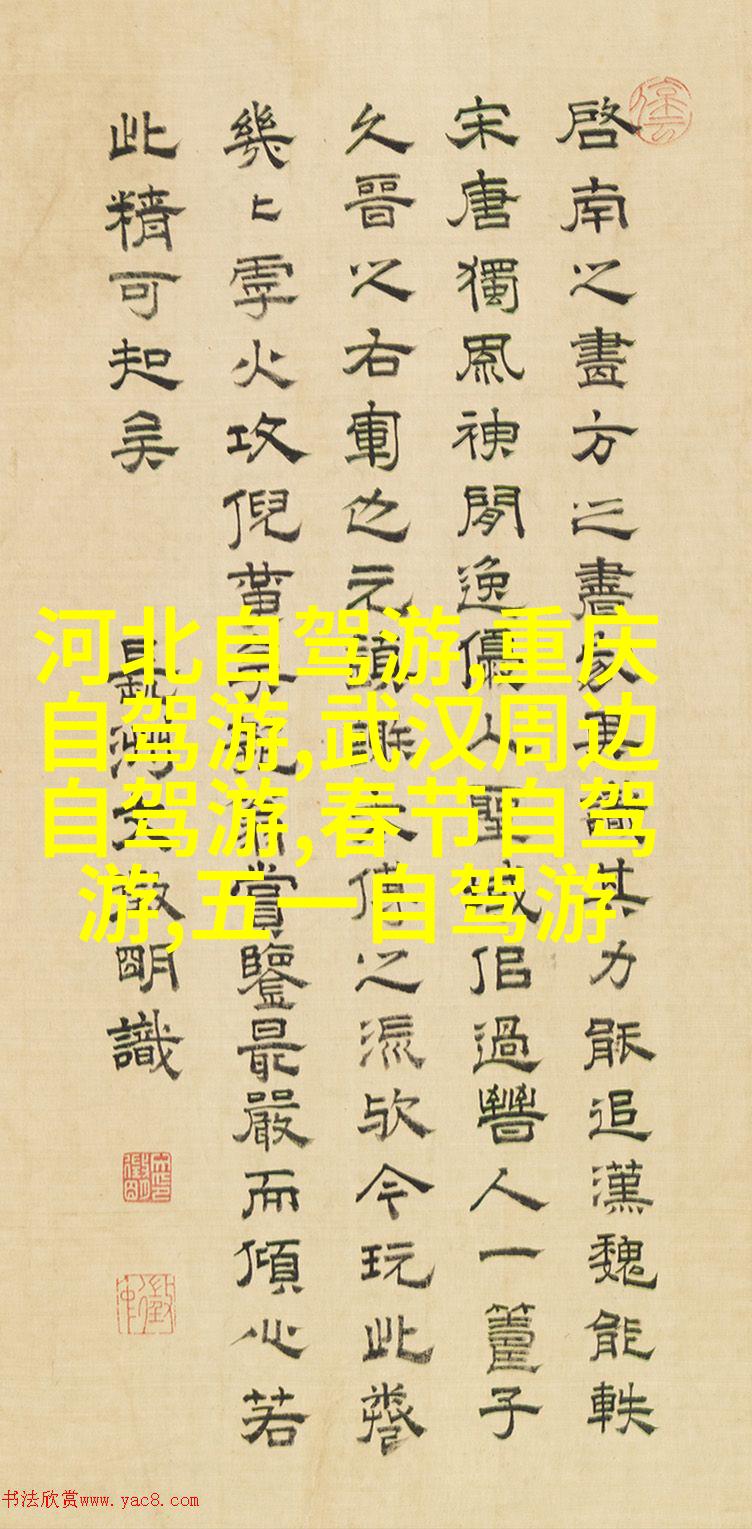 啓南之畫方之書家其力能追漢魏能軼
宋唐獨風神閒逸人聖域過人一籌子
久晉之右軍也元鎮之派歟今玩此卷
幾上火攻倪黃賞鑒最嚴而傾心若
此精可知矣 文徵明識
河北自驾游,重庆
自驾游,武汉周边
自驾游,春节自驾
游,五一自驾游
书法欣赏www.yac8.com